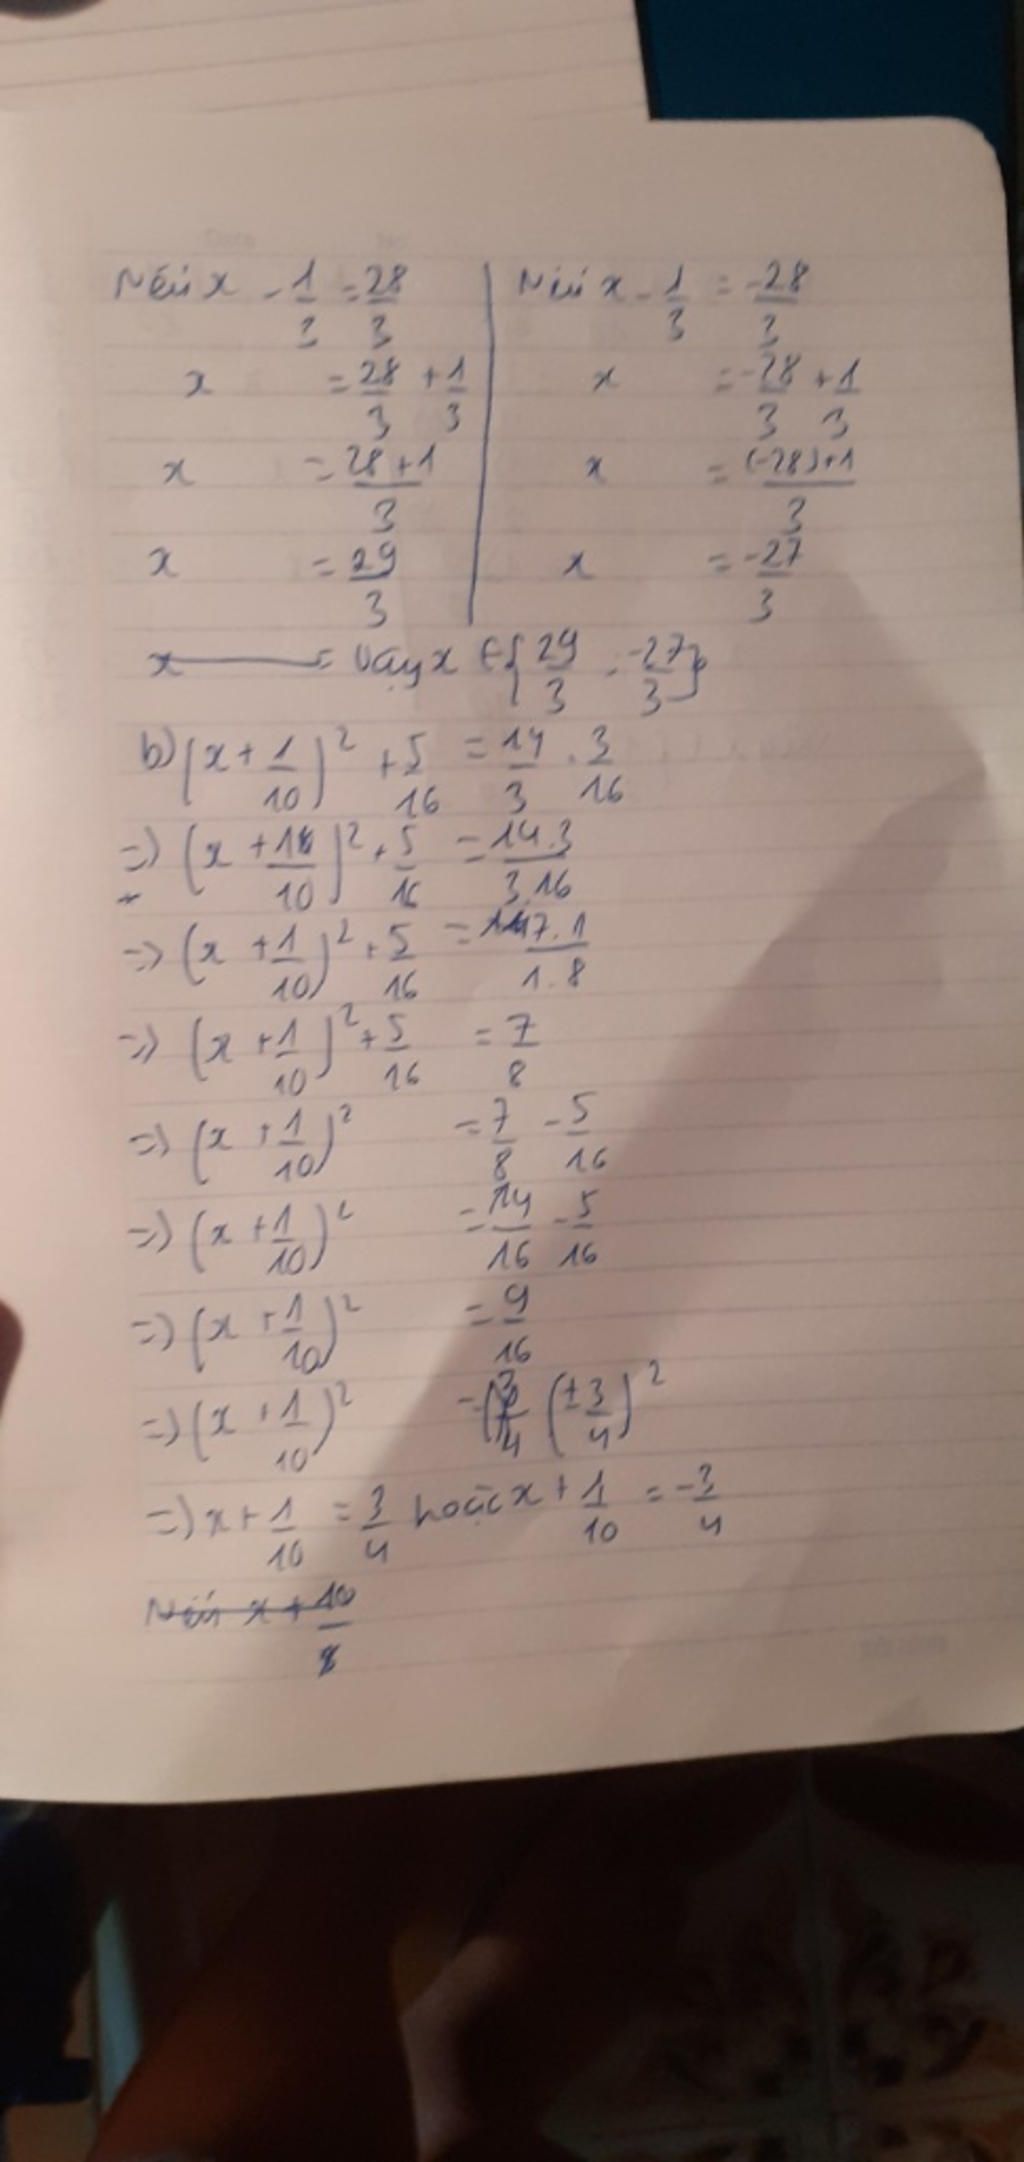 Nếu x - 1/3 = 28/3
x = 28/3 + 1/3
x = (28+1)/3
x = 29/3
Nếu x - 1/3 = -28/3
x = -28/3 + 1/3
x = ((-28)+1)/3
x = -27/3
x = Vậy x ∈ {29/3 ; -27/3}
b) (x + 1/10)² + 5/16 = 14/3 . 3/16
=> (x + 1/10)² + 5/16 = (14.3)/(3.16)
=> (x + 1/10)² + 5/16 = (7.1)/(1.8)
=> (x + 1/10)² + 5/16 = 7/8
=> (x + 1/10)² = 7/8 - 5/16
=> (x + 1/10)² = 14/16 - 5/16
=> (x + 1/10)² = 9/16
=> (x + 1/10)² = (±3/4)²
=> x + 1/10 = 3/4 hoặc x + 1/10 = -3/4
Nếu x +